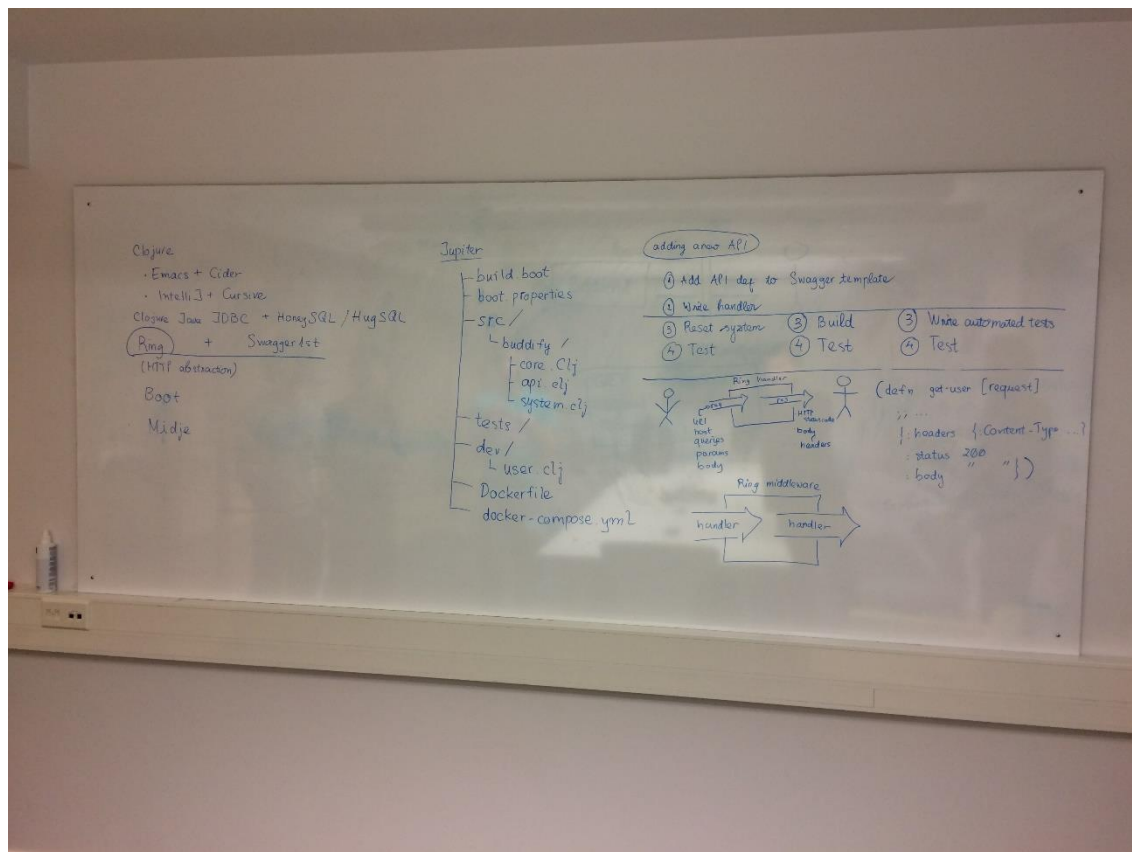 Clojure
· Emacs + Cider
· IntelliJ + Cursive
Clojure Java JDBC + HoneySQL / HugSQL
Ring + Swagger1st
(HTTP abstraction)
Boot
Midje
Jupiter
build.boot
boot.properties
src /
buddify /
core.clj
api.clj
system.clj
tests /
dev /
user.clj
Dockerfile
docker-compose.yml
adding a new API
① Add API def to Swagger template
② Write handler
③ Reset system
④ Test
③ Build
④ Test
③ Write automated tests
④ Test
Ring handler
req
url
host
queries
params
body
HTTP
body
headers
(defn get-user [request]
;; ...
{:headers {:Content-Type ...}
:status 200
:body " "})
Ring middleware
handler
handler